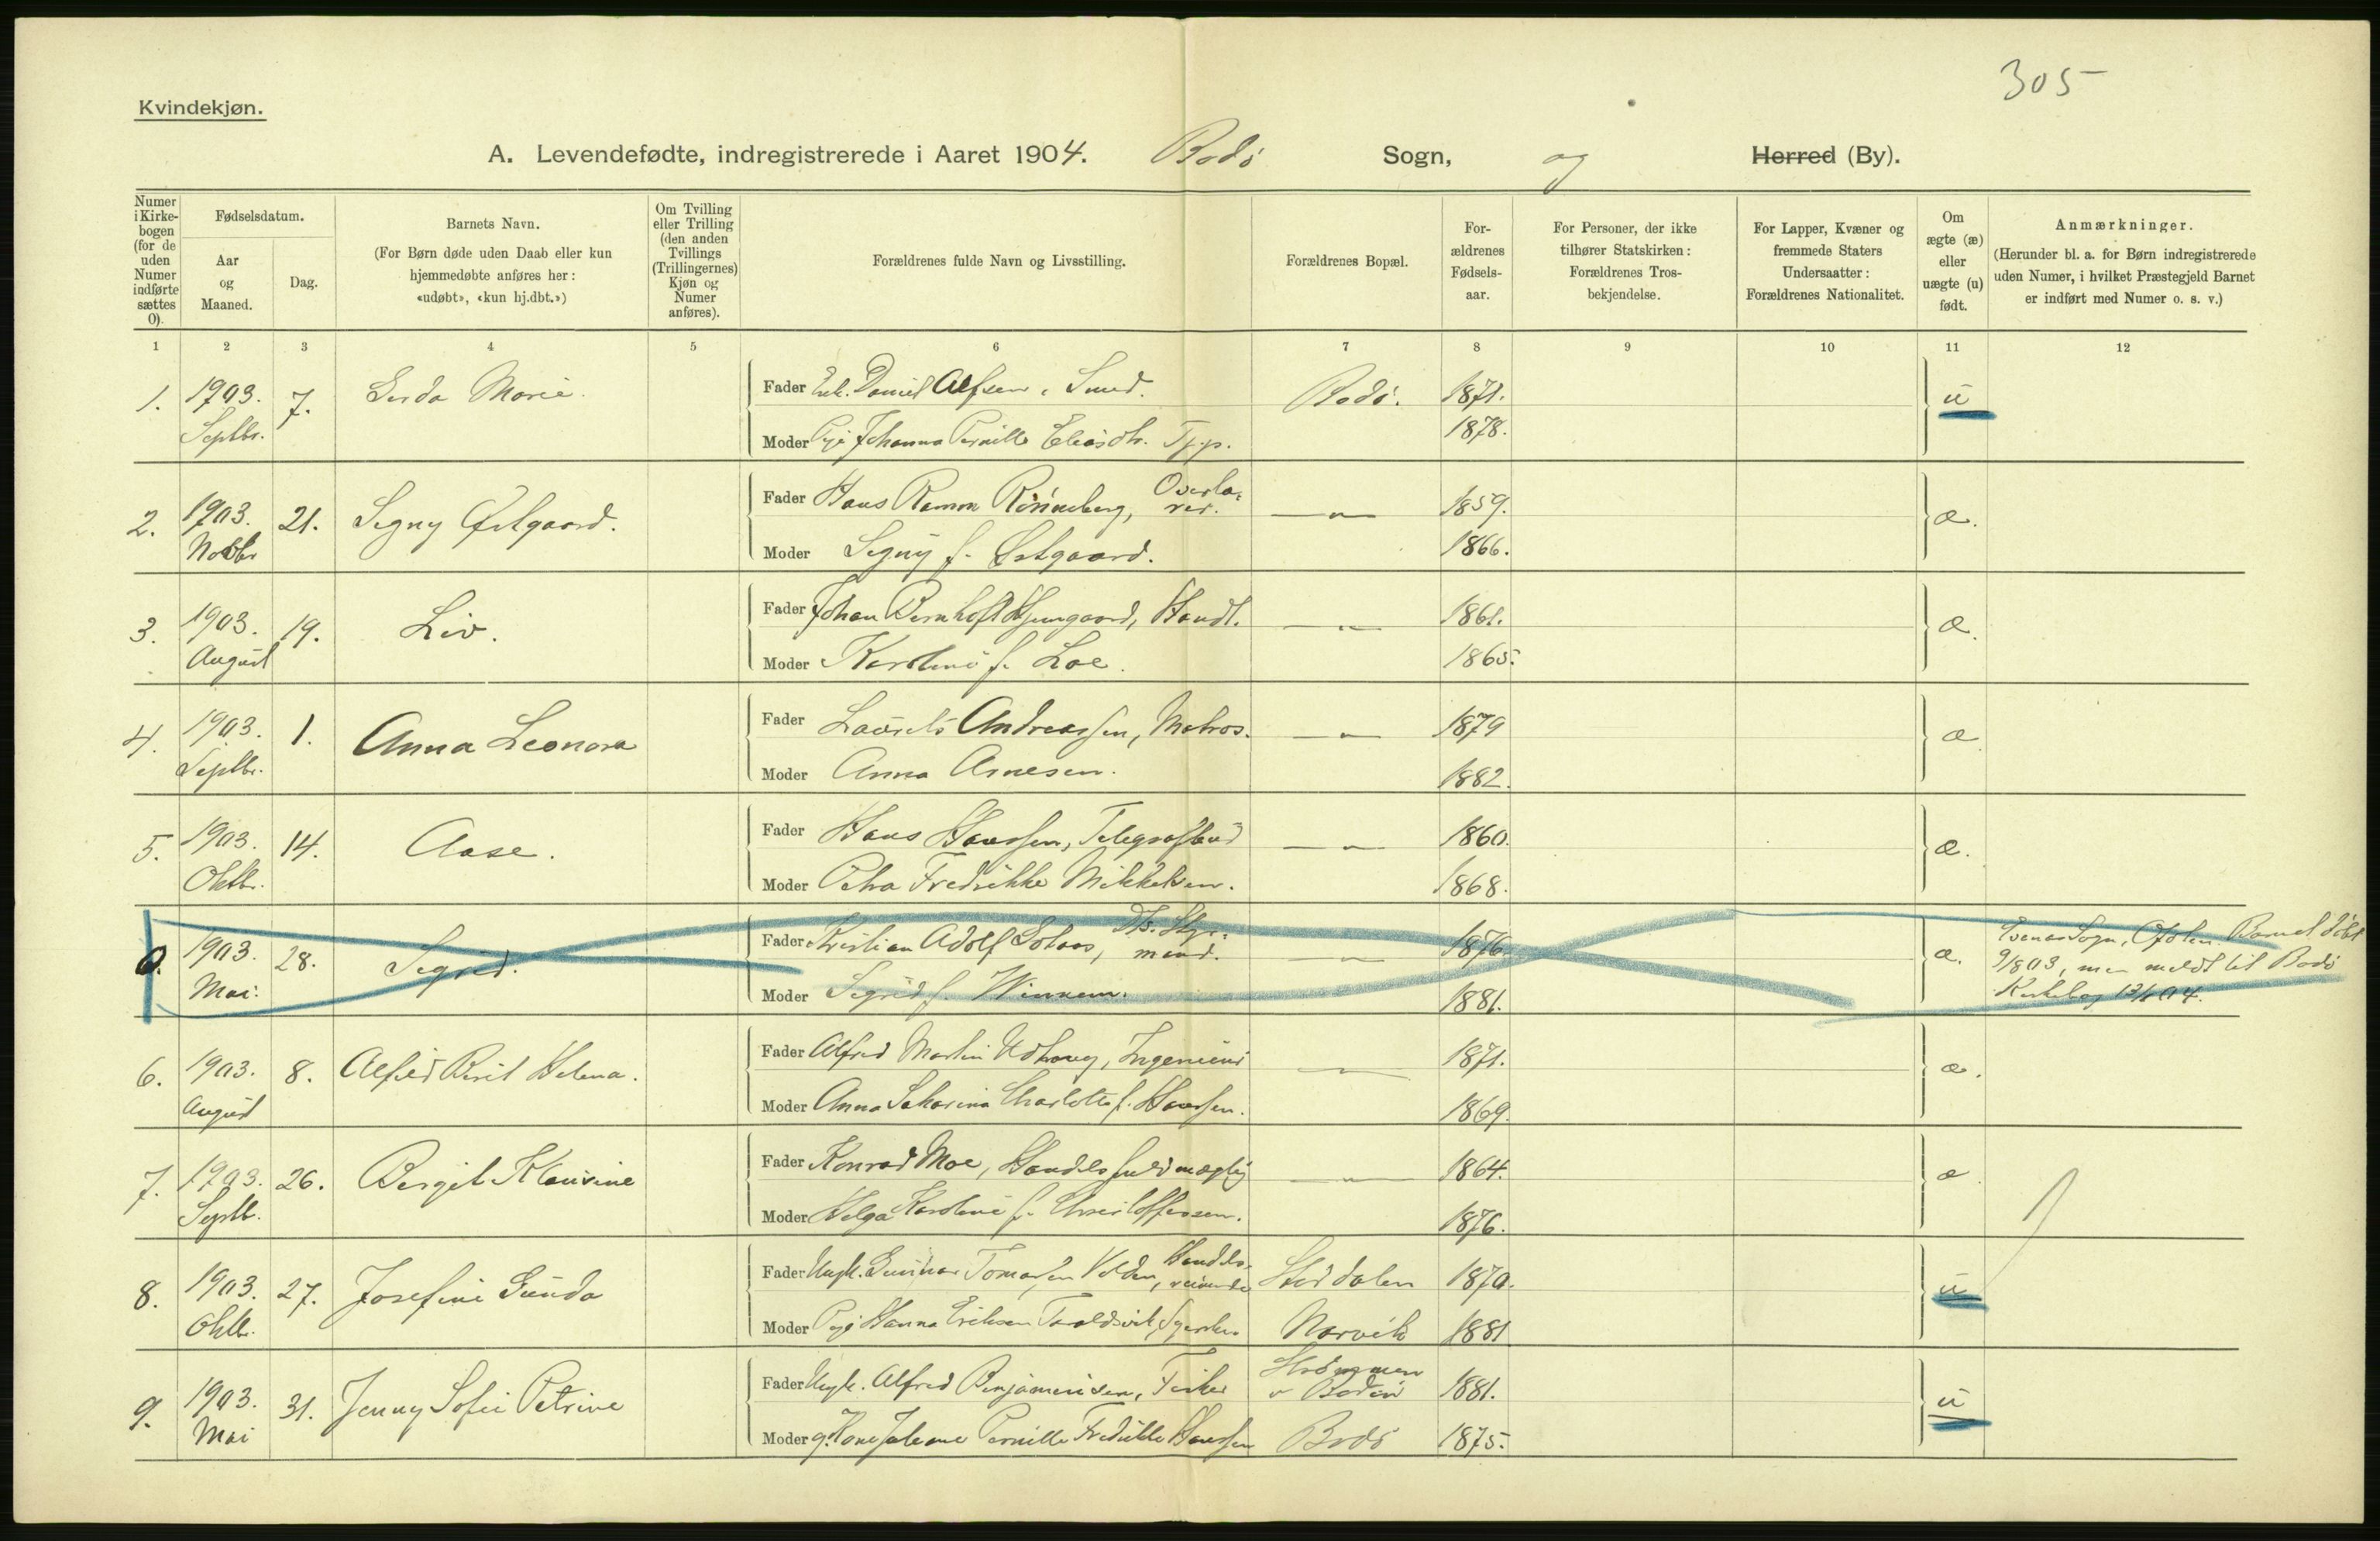 305
Kvindekjøn.
A. Levendefødte, indregistrerede i Aaret 1904. Bodø Sogn, og Herred (By).
Numer i Kirke-bogen (for de uden Numer indførte sættes 0).
Fødselsdatum.
Aar og Maaned.
Dag.
Barnets Navn.
(For Børn døde uden Daab eller kun hjemmedøbte anføres her: «udøbt», «kun hj.dbt.»)
Om Tvilling eller Trilling (den anden Tvillings (Trillingernes) Kjøn og Numer anføres).
Forældrenes fulde Navn og Livsstilling.
Forældrenes Bopæl.
For-ældrenes Fødsels-aar.
For Personer, der ikke tilhører Statskirken: Forældrenes Tros-bekjendelse.
For Lapper, Kvæner og fremmede Staters Undersaatter: Forældrenes Nationalitet.
Om ægte (æ) eller uægte (u) født.
Anmærkninger.
(Herunder bl. a. for Børn indregistrerede uden Numer, i hvilket Præstegjeld Barnet er indført med Numer o. s. v.)
1 2 3 4 5 6 7 8 9 10 11 12
1. 1903. Septbr. 7. Gerda Marie. Fader Enk. Daniel Alfsen, Smed. Bodø. 1871. u
Moder Pige Johanna Pernille Eliasdtr. Tj.p. 1878.
2. 1903. Novbr 21. Signy Østgaard. Fader Hans Ramm Rønneberg, Overlærer. — " — 1859. æ.
Moder Signy f. Østgaard. 1866.
3. 1903. August 19. Liv. Fader Johan Bernhoft Hjemgaard, Handl. — " — 1861. æ.
Moder Karoline f. Loe. 1865.
4. 1903. Septbr. 1. Anna Leonora Fader Laurits Andreassen, Matros. — " — 1879 æ
Moder Anna Arnesen. 1882.
5. 1903. Oktbr. 14. Aase. Fader Hans Hanssen, Telegrafbud — " — 1860. æ.
Moder Petra Fredrikke Mikkelsen. 1868.
0. 1903. Mai. 28. Sigrid. Fader Kristian Adolf Solaas, Ds. Styrmand. — " — 1876. æ. Evenes Sogn, Ofoten. Barnet døbt 9/8 03, men meldt til Bodø Kirkebog
Moder Sigrid f. Winnem. 1881.
6. 1903. August 8. Alfhild Berit Helena. Fader Alfred Martin Udhaug, Ingeniør — " — 1871. æ.
Moder Anna Katharina Charlotte f. Hanssen. 1869.
7. 1903. Septb. 26. Bergit Klausine Fader Konrad Moe, Handelsfuldmægtig — " — 1864. æ
Moder Helga Karoline f. Christoffersen. 1876.
8. 1903. Oktb. 27. Josefine Gunda Fader Ungk. Gunnar Tomassen Velden, Handelsreisende Stördalen 1870. u
Moder Pige Hanna Eriksen Taraldsvik, Narvik 1881
9. 1903. Mai 31. Jenny Sofie Petrine Fader Ungk. Alfred Benjaminsen, Fisker Strømmen v Bodin 1881. u
Moder g. Kone Juliane Pernille Fredrikke Hanssen Bodø 1875.